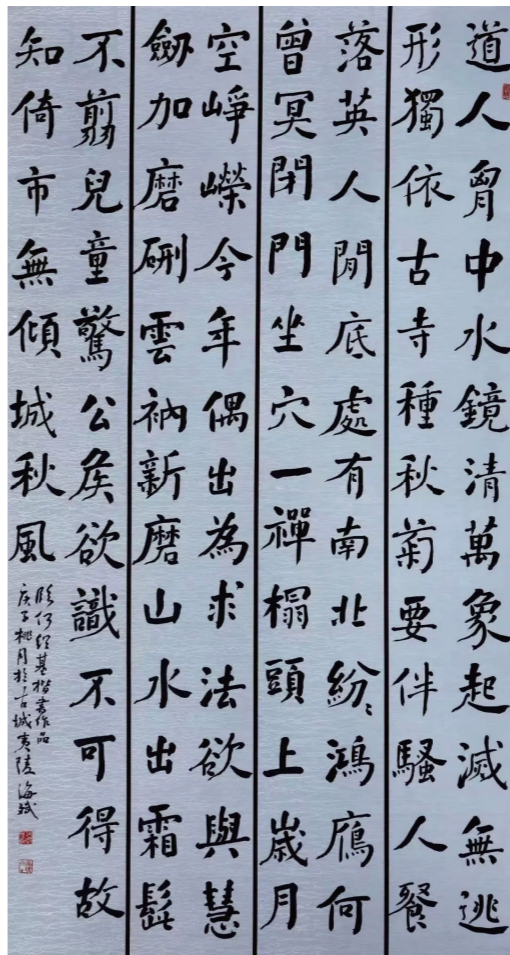 道人胷中水鏡清萬象起滅無逃
形獨依古寺種秋菊要伴騷人餐
落英人閒底處有南北紛〻鴻鴈何
曾冥閉門坐穴一禪榻頭上歲月
空崢嶸今年偶出為求法欲與慧
劒加磨硎雲衲新磨山水出霜髭
不翦兒童驚公侯欲識不可得故
知倚市無傾城秋風
臨何紹基楷書作品
庚子桃月於古城夷陵海斌